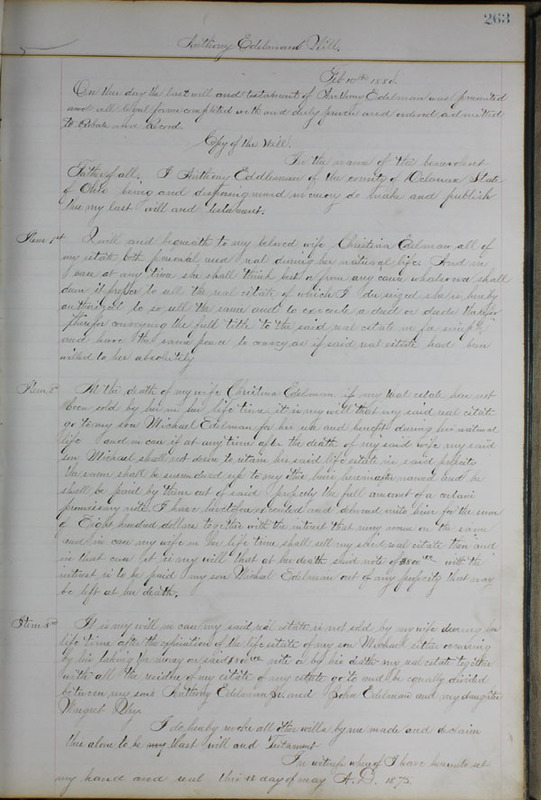 263
Anthony Edelmans Will.
Feb 10th 188
On this day the last will and testament of Anthony Edelman was presented
and all legal forms completed with and duly proven and ordered admitted
to Probate and Record.
Copy of the Will.
In the name of the benevolent
Father of all. I Anthony Eddleman of the county of State
of Ohio being and disposing mind memory do make and publish
this my last will and testament.
Item 1st I will and bequeath to my beloved wife Christina Edelman all of
my estate both personal and real during her natural life. And in
case at any time she shall think best or from any cause whatsoever shall
deem it proper to sell the real estate of which I die seized she is hereby
authorized to so sell the same and to execute a deed or deeds therefor
therefor conveying the full title to the said real estate in fee simple
and have the same power to convey as if said real estate had been
willed to her absolutely
Item 2d At the death of my wife Christina Edelman if my real estate has not
been sold by her in her life time it is my will that my said real estate
go to my son Michael Edelman for his use and benefit during his natural
life and in case if at any time after the death of my said wife my said
son Michael shall not desire to retain his said life estate in said
the same shall be surrendered up to my other heirs hereinafter named and he
shall be paid by them out of said property the full amount of a certain
promissory note I have heretofore and delivered unto him for the sum
of Eight hundred dollars together with the interest that may accrue on the same
and in case my wife in her life time shall sell my said real estate then and
in that case it is my will that at her death said note of 800 with the
interest is to be paid my son Michael Edelman out of my property that may
be left at her death.
Item 3d It is my will in case my said real estate is not sold by my wife during her
life time after the expiration of the life estate of my son Michael either occurring
by his taking the money on said note or by his death my real estate together
with all the residue of my estate of my estate go to and be equally divided
between my sons Anthony Edelman Jr. and John Edelman and my daughter
Margret
I do hereby revoke all other wills by me made and declaim
this alone to be my last will and Testament
In witness whereof I have hereunto set
my hand and seal this 18 day of may A.D. 1875.